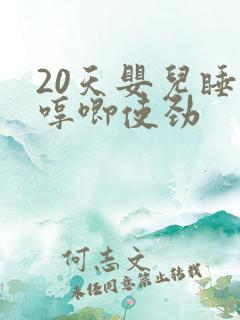 20天嬰兒睡
哼唧使劲
何志文
未经同意禁止转载